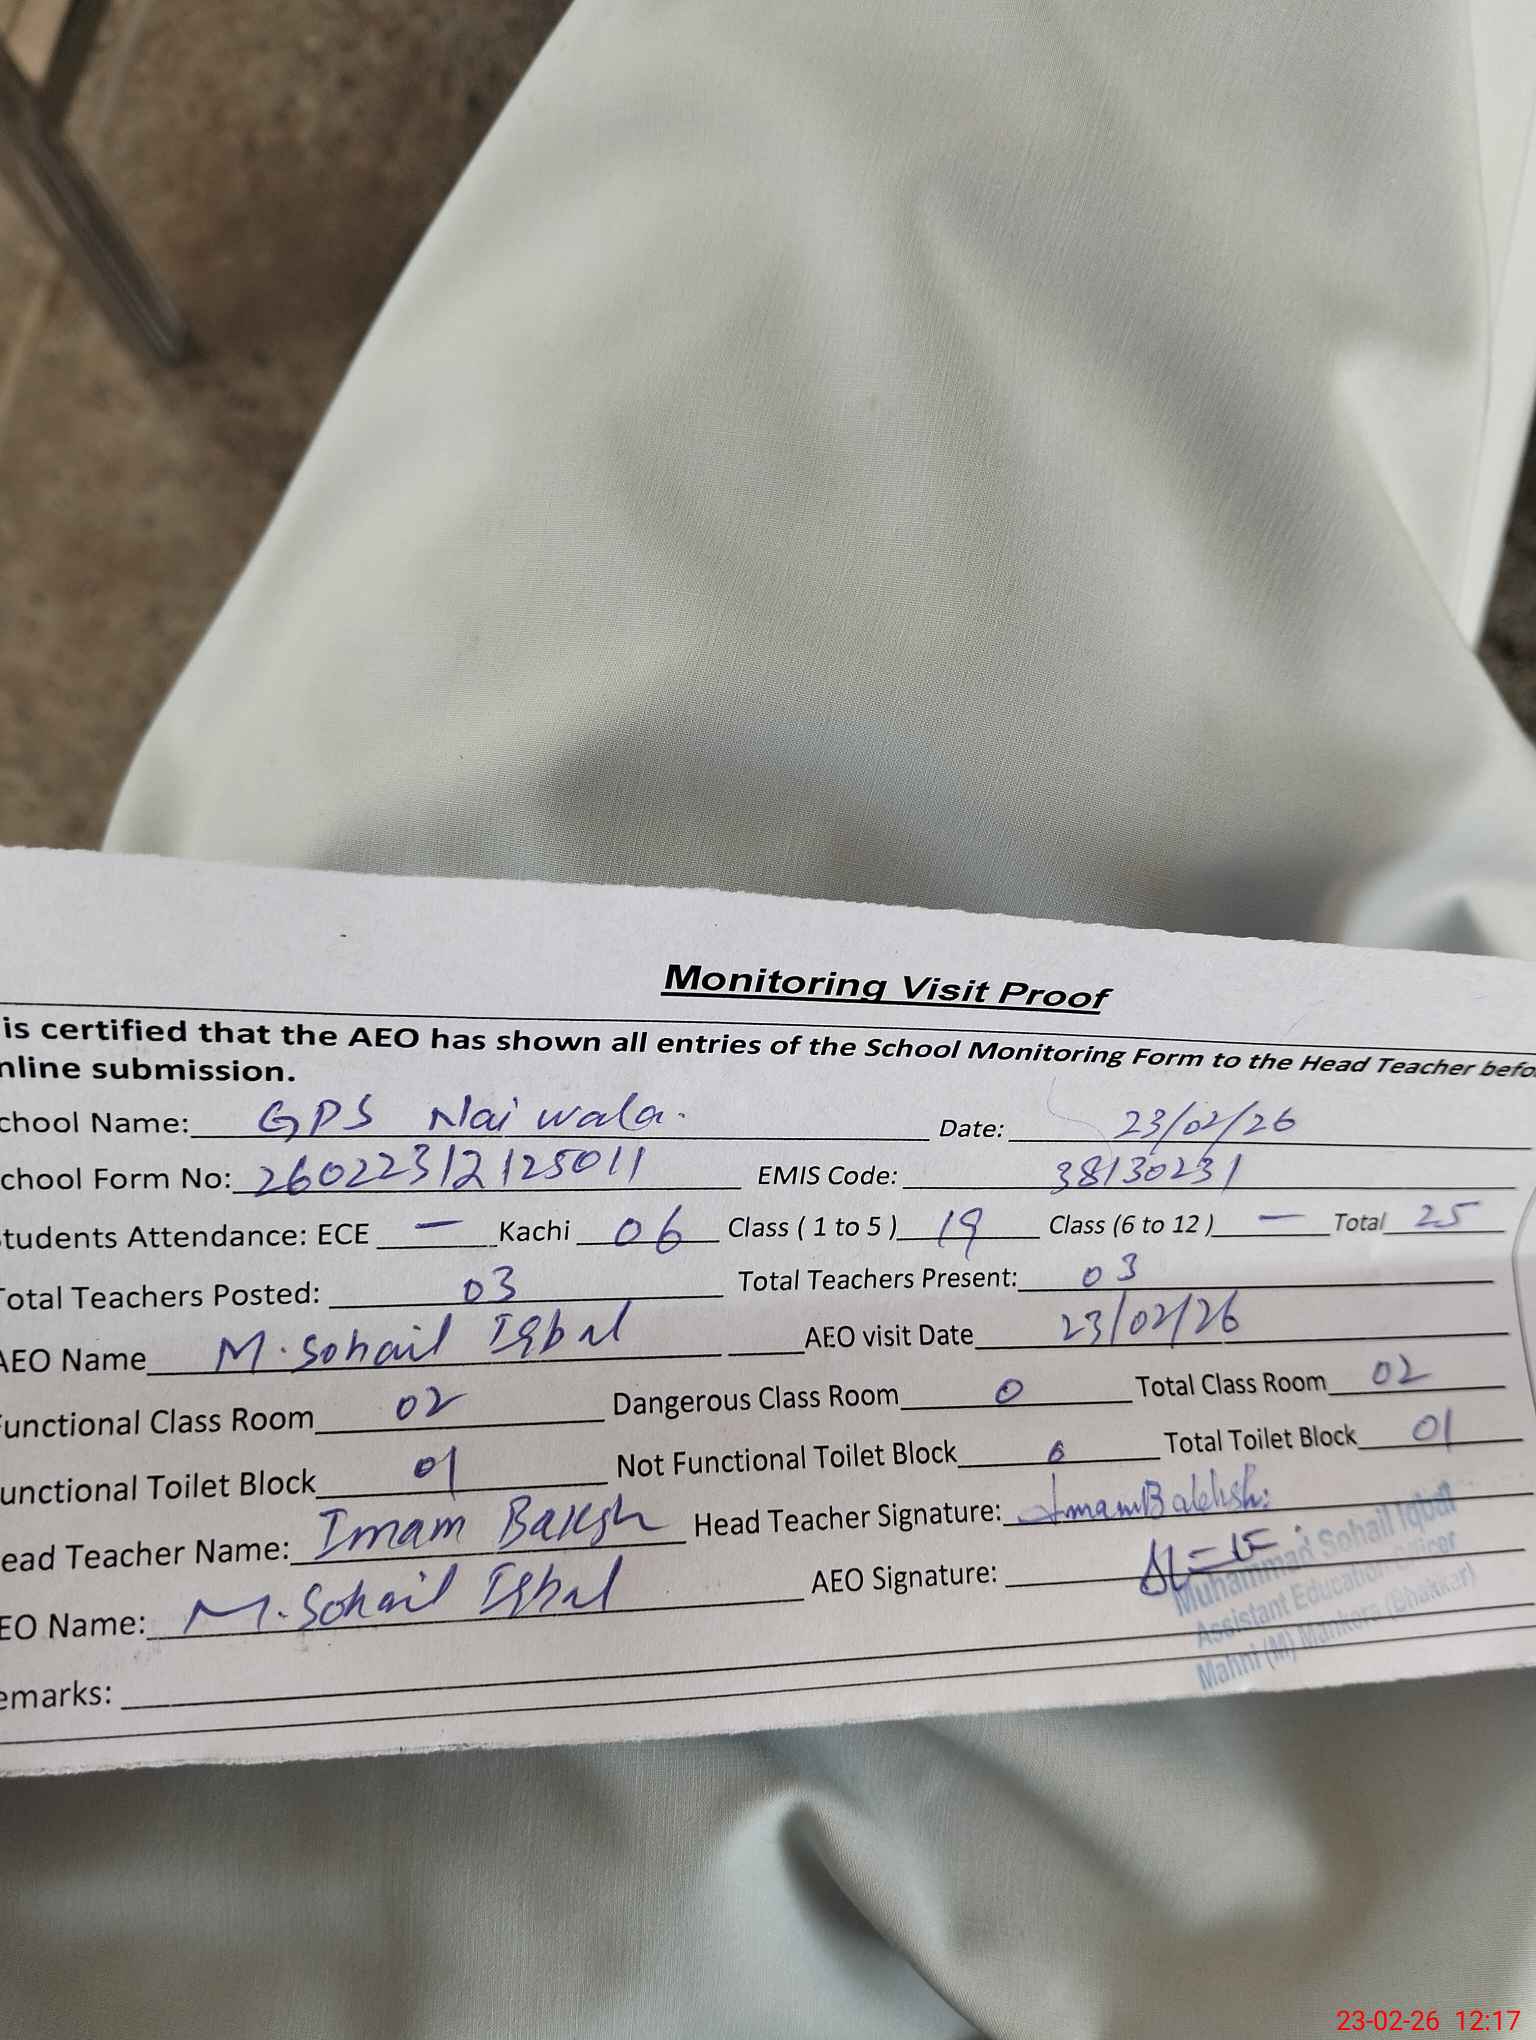 Monitoring Visit Proof
is certified that the AEO has shown all entries of the School Monitoring Form to the Head Teacher befo
nline submission.
chool Name: GPS Nai wala. Date: 23/02/26
chool Form No: 26022312125011 EMIS Code: 38130231
tudents Attendance: ECE — Kachi 06 Class ( 1 to 5 ) 19 Class (6 to 12 ) — Total 25
Total Teachers Posted: 03 Total Teachers Present: 03
AEO Name M. Sohail Iqbal AEO visit Date 23/02/26
Functional Class Room 02 Dangerous Class Room 0 Total Class Room 02
unctional Toilet Block 01 Not Functional Toilet Block 0 Total Toilet Block 01
ead Teacher Name: Imam Baksh Head Teacher Signature: Imam Bakhsh
EO Name: M. Sohail Iqbal AEO Signature:
Muhammad Sohail Iqbal
Assistant Education Officer
Mahni (M) Mankera (Bhakkar)
emarks:
23-02-26 12:17